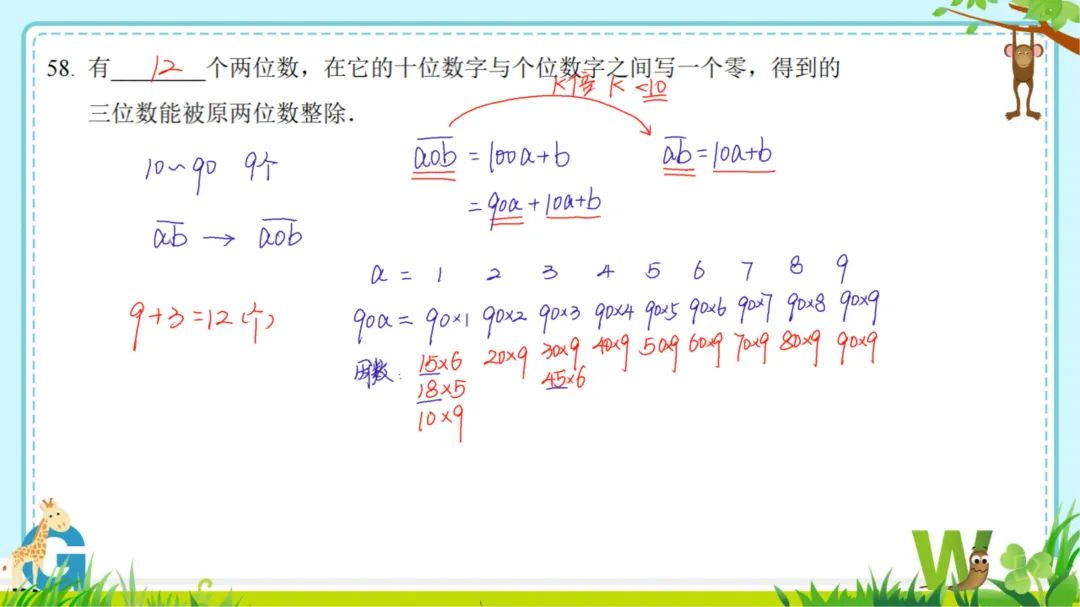 58. 有 12 个两位数，在它的十位数字与个位数字之间写一个零，得到的
三位数能被原两位数整除．
K倍 K <10
10~90 9个
a0b = 100a+b ab = 10a+b
= 90a + 10a+b
ab → a0b
a = 1 2 3 4 5 6 7 8 9
9+3=12(个)
90a = 90×1 90×2 90×3 90×4 90×5 90×6 90×7 90×8 90×9
因数: 15×6 20×9 30×9 40×9 50×9 60×9 70×9 80×9 90×9
18×5 45×6
10×9
G
W